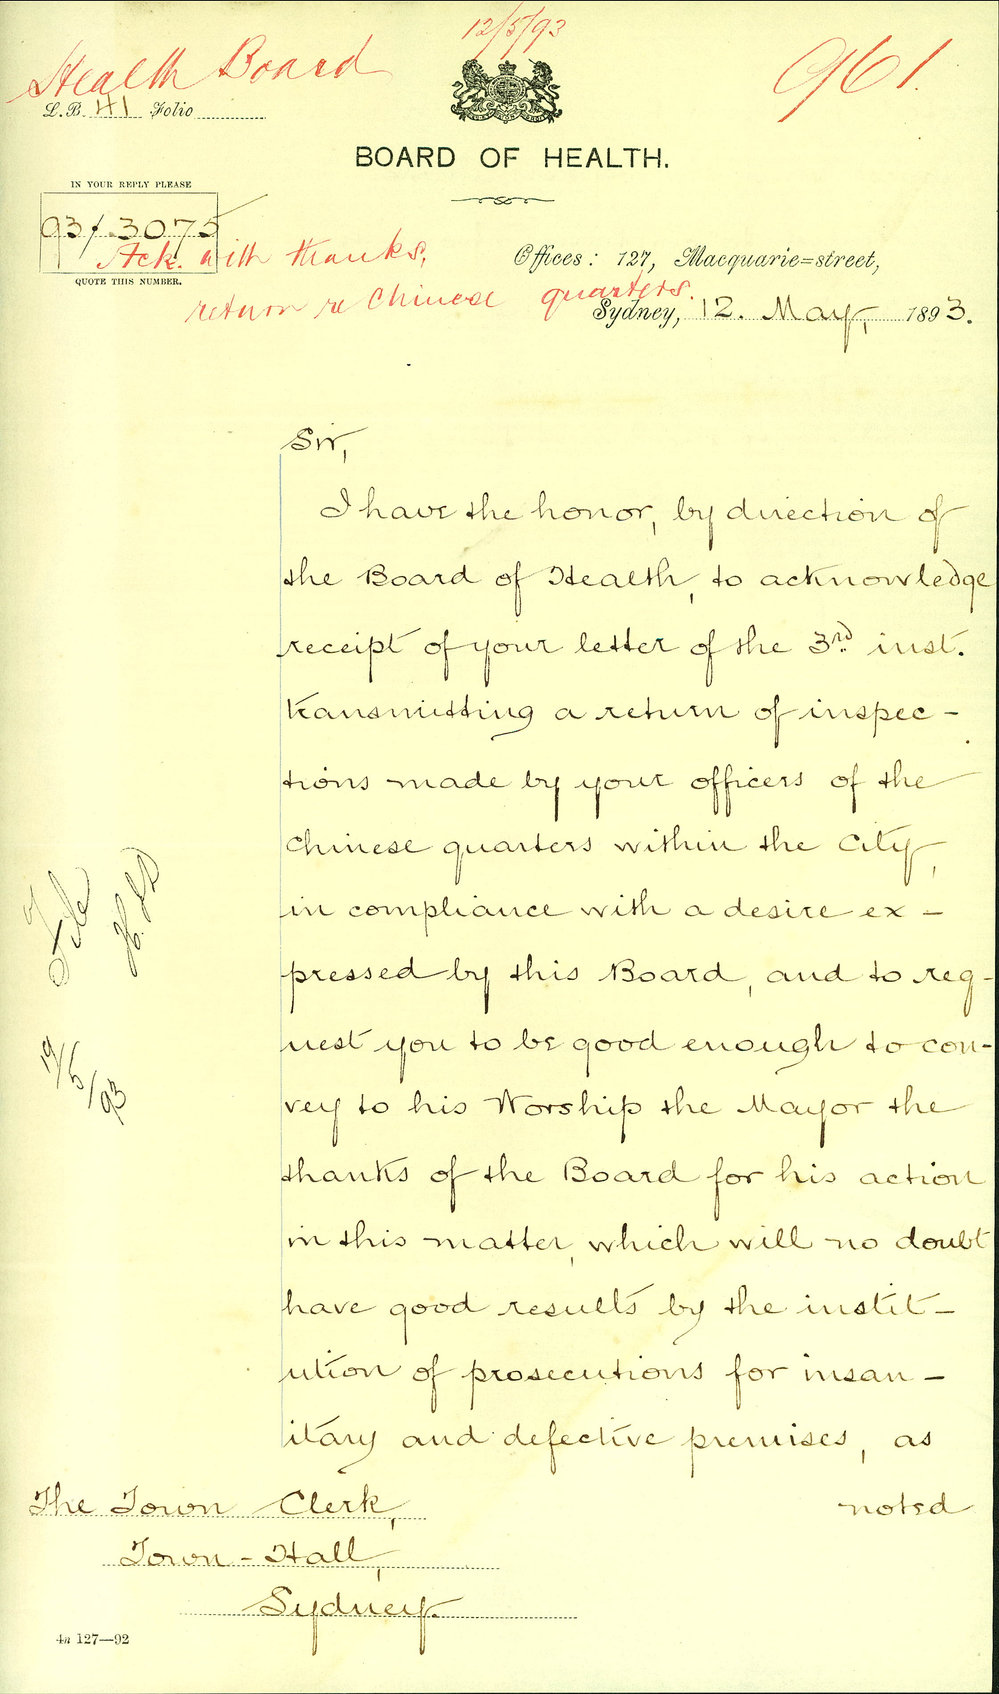 12/5/93
Health Board
961.
L.B. 41 Folio
BOARD OF HEALTH.
IN YOUR REPLY PLEASE
93/.3075
QUOTE THIS NUMBER.
Ack. with thanks,
return re Chinese quarters.
Offices: 127, Macquarie=street,
Sydney, 12. May, 1893.
Sir,
I have the honor, by direction of
the Board of Health, to acknowledge
receipt of your letter of the 3rd. inst.
transmitting a return of inspec-
tions made by your officers of the
Chinese quarters within the City,
in compliance with a desire ex-
pressed by this Board, and to req-
uest you to be good enough to con-
vey to his Worship the Mayor the
thanks of the Board for his action
in this matter, which will no doubt
have good results by the instit-
ution of prosecutions for insan-
itary and defective premises, as
noted
File
19/5/93
The Town Clerk,
Town-Hall,
Sydney.
4a 127—92